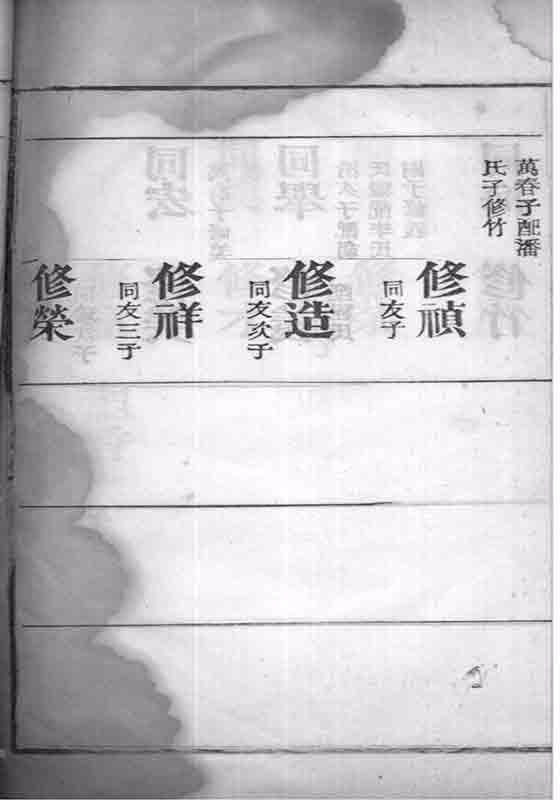 萬春子配潘
氏子修竹
修禎
同友子
修造
同友次子
修祥
同友三子
修榮